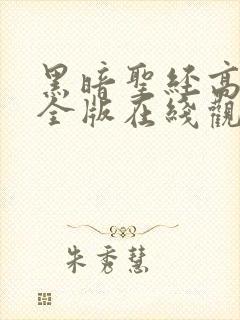 黑暗聖經高
全版在綫觀
朱秀慧